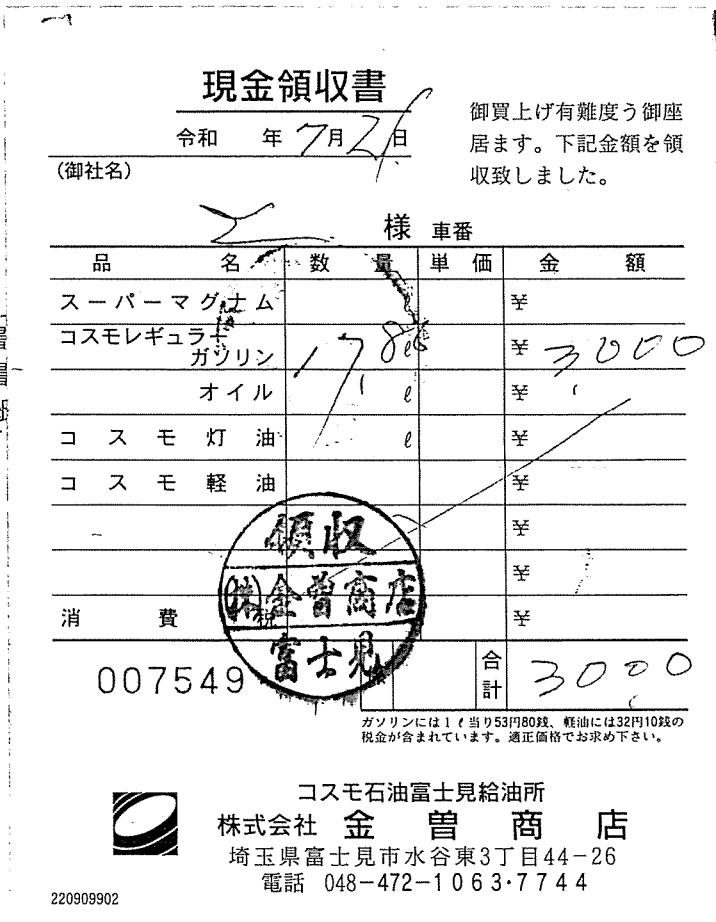 現金領収書
令和 年 7月26日
御買上げ有難度う御座
居ます。下記金額を領
収致しました。
(御社名)
様 車番
品 名 数 量 単 価 金 額
スーパーマグナム ℓ ¥
コスモレギュラー
ガソリン 17.86 ℓ ¥ 3,000
オイル ℓ ¥
コスモ灯油 ℓ ¥
コスモ軽油 ¥
¥
¥
消費税 ¥
領収
(株)金曽商店
富士見
007549
合計 3,000
ガソリンには1ℓ当り53円80銭、軽油には32円10銭の
税金が含まれています。適正価格でお求め下さい。
コスモ石油富士見給油所
株式会社 金曽商店
埼玉県富士見市水谷東3丁目44-26
電話 048-472-1063・7744
220909902